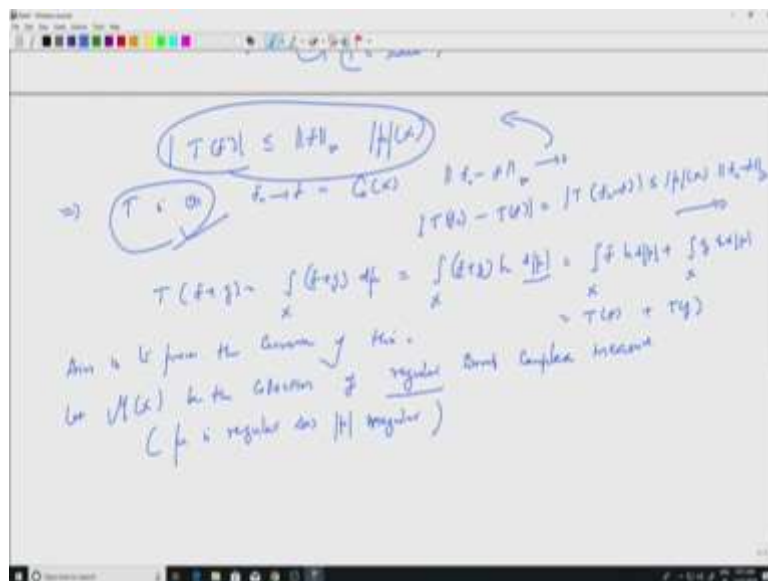 |T(f)| ≤ ‖f‖∞ |μ|(X)
⇒ T is cts f_n → f in C_0(X) ‖f_n - f‖∞ → 0
|T(f_n) - T(f)| = |T(f_n - f)| ≤ |μ|(X) ‖f_n - f‖∞
T(f+g) = ∫_X (f+g) dμ = ∫_X (f+g) h d|μ| = ∫_X f h d|μ| + ∫_X g h d|μ|
= T(f) + T(g)
Aim is to prove the converse of this.
Let M(X) be the collection of regular Borel Complex measure
(μ is regular if |μ| regular)